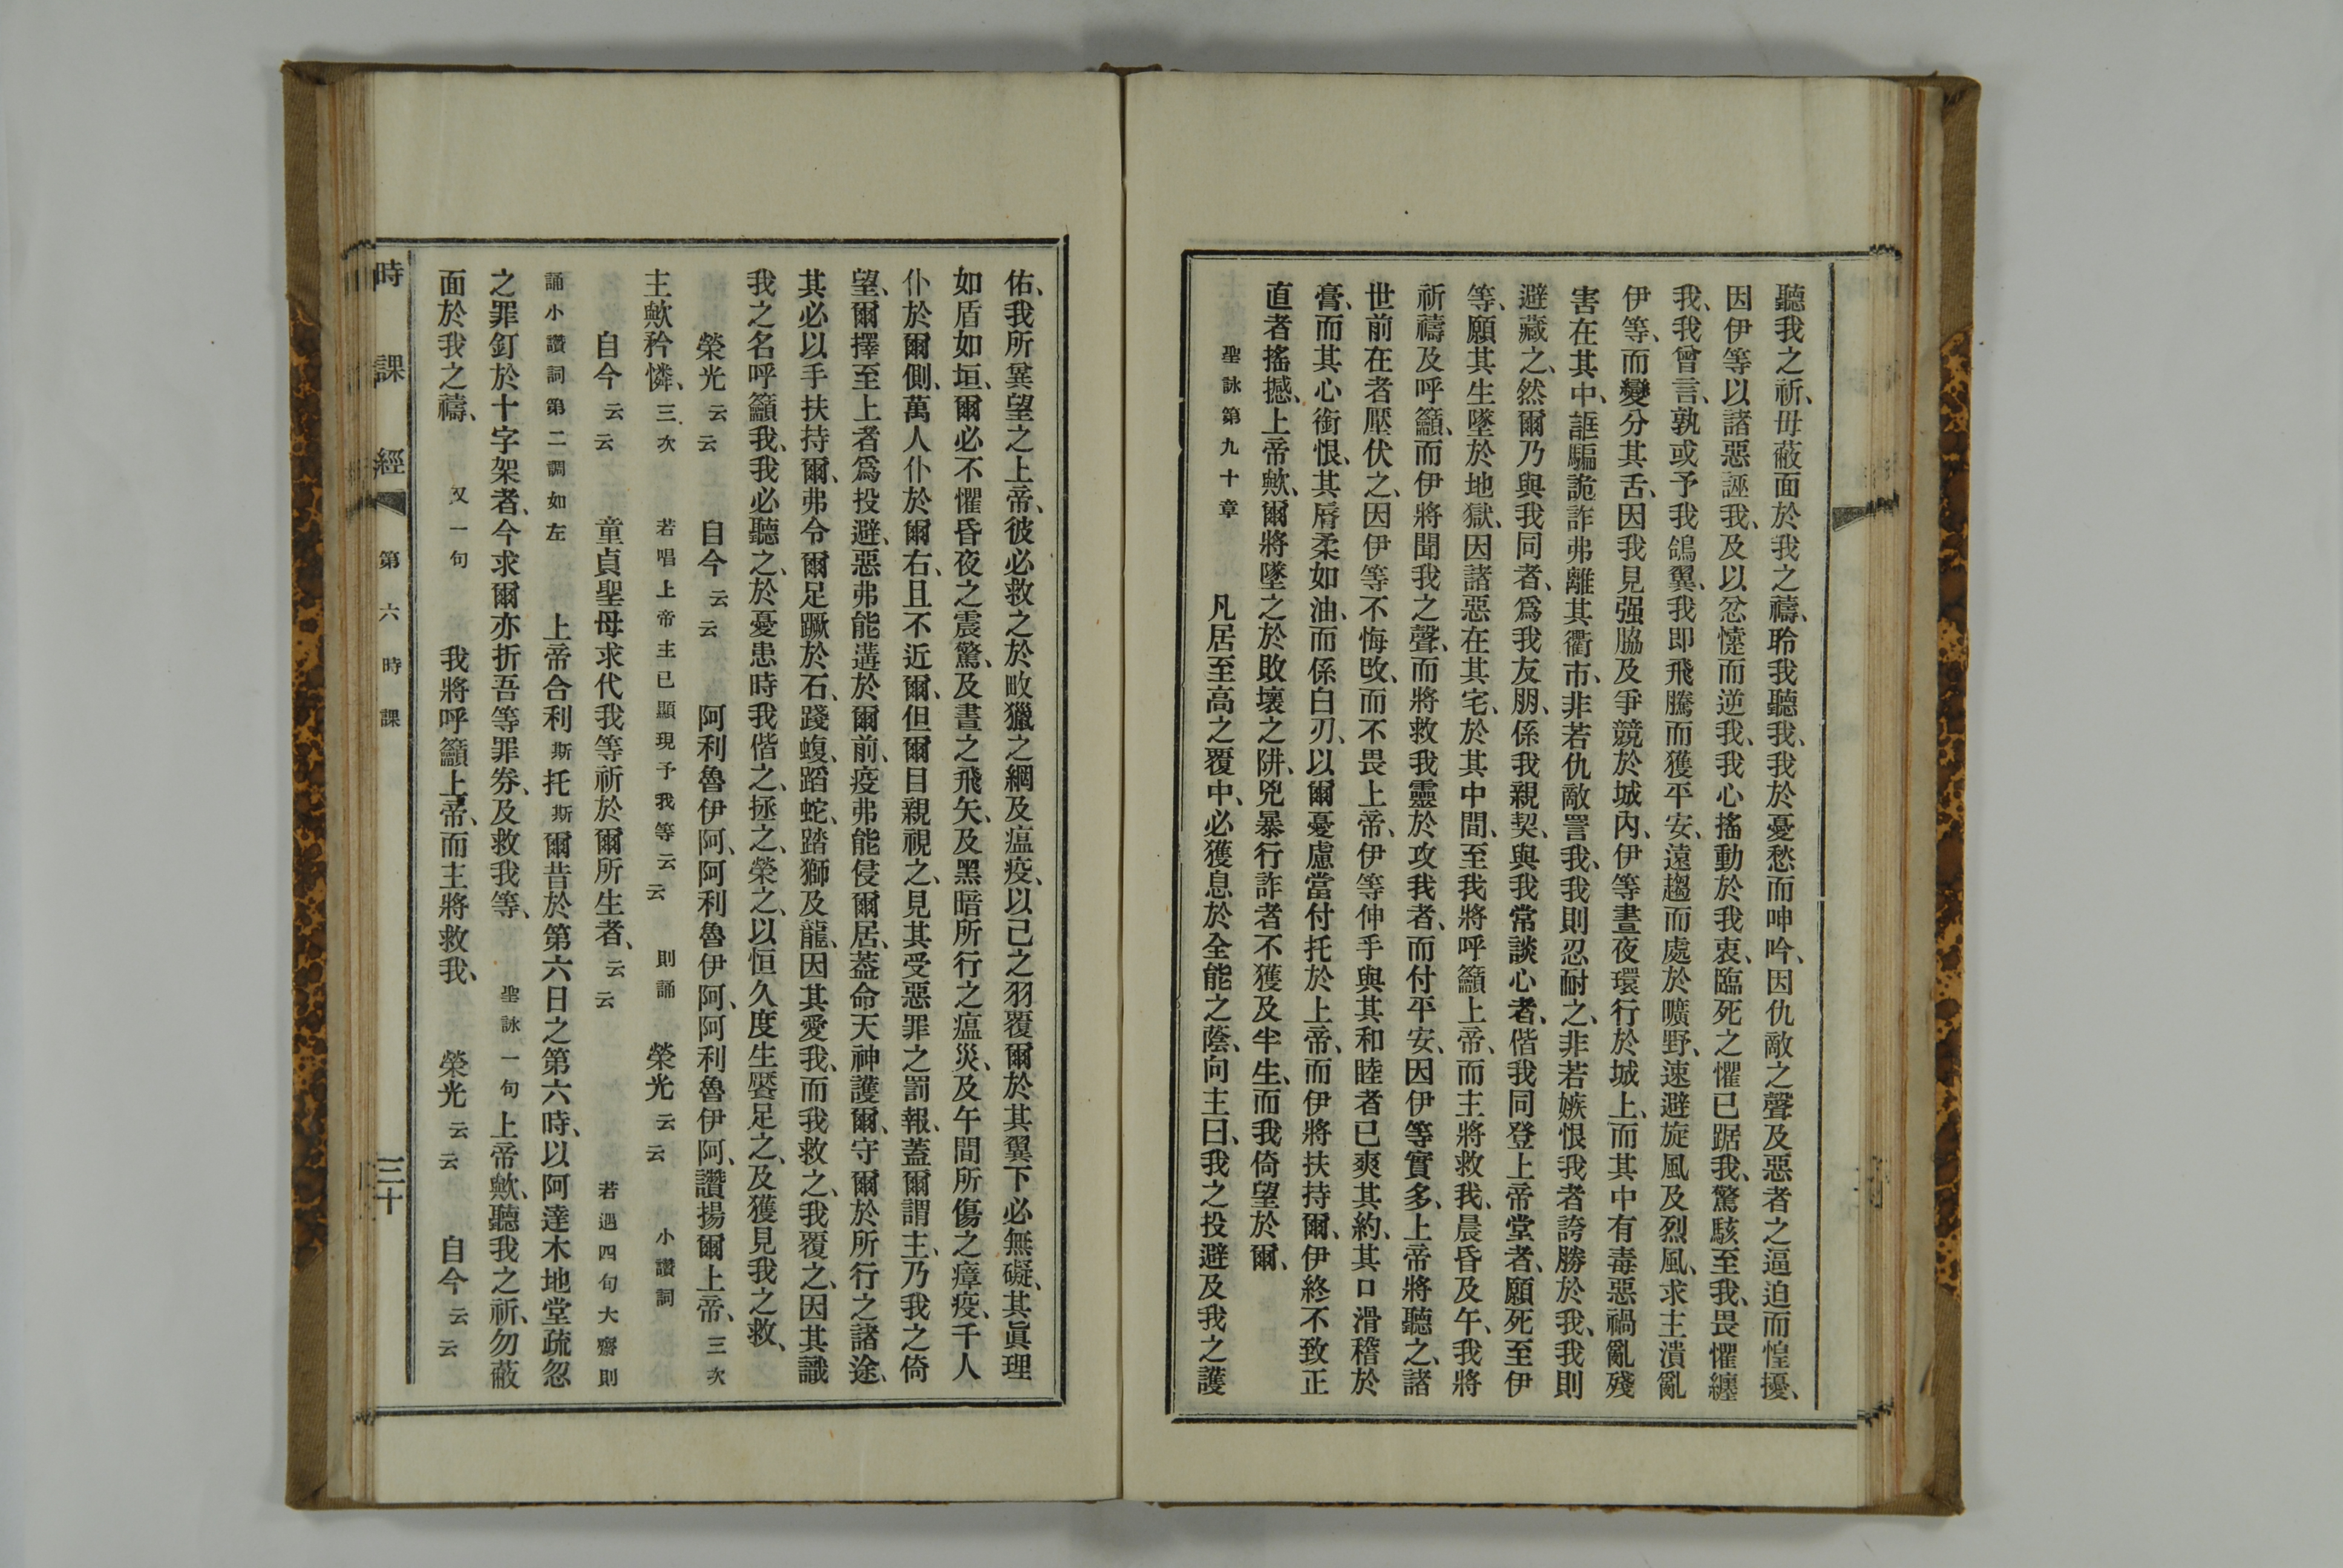 聽我之祈、毋蔽面於我之禱、聆我聽我、我於憂愁而呻吟、因仇敵之聲及惡者之逼迫而惶擾、
因伊等以諸惡誣我、及以忿懥而逆我、我心搖動於我衷、臨死之懼已踞我、驚駭至我、畏懼纏
我、我曾言、孰或予我鴿翼、我即飛騰而獲平安、遠趨而處於曠野、速避旋風及烈風、求主潰亂
伊等、而變分其舌、因我見强脇及爭競於城內、伊等晝夜環行於城上、而其中有毒惡禍亂殘
害在其中、誆騙詭詐弗離其衢市、非若仇敵詈我、我則忍耐之、非若嫉恨我者誇勝於我、我則
避藏之、然爾乃與我同者、爲我友朋、係我親契、與我常談心者、偕我同登上帝堂者、願死至伊
等、願其生墜於地獄、因諸惡在其宅、於其中間、至我將呼籲上帝、而主將救我、晨昏及午、我將
祈禱及呼籲、而伊將聞我之聲、而將救我靈於攻我者、而付平安、因伊等實多、上帝將聽之、諸
世前在者壓伏之、因伊等不悔改、而不畏上帝、伊等伸手與其和睦者已爽其約、其口滑稽於
膏、而其心銜恨、其脣柔如油、而係白刃、以爾憂慮當付托於上帝、而伊將扶持爾、伊終不致正
直者搖撼、上帝歟、爾將墜之於敗壞之阱、兇暴行詐者不獲及半生、而我倚望於爾、
聖詠第九十章 凡居至高之覆中、必獲息於全能之蔭、向主曰、我之投避及我之護
佑、我所冀望之上帝、彼必救之於畋獵之網及瘟疫、以己之羽覆爾於其翼下必無礙、其眞理
如盾如垣、爾必不懼昏夜之震驚、及晝之飛矢、及黑暗所行之瘟災、及午間所傷之瘴疫、千人
仆於爾側、萬人仆於爾右、且不近爾、但爾目親視之、見其受惡罪之罰報、蓋爾謂主、乃我之倚
望、爾擇至上者爲投避、惡弗能遘於爾前、疫弗能侵爾居、葢命天神護爾、守爾於所行之諸途、
其必以手扶持爾、弗令爾足蹶於石、踐蝮、蹈蛇、踏獅及龍、因其愛我、而我救之、我覆之、因其識
我之名呼籲我、我必聽之、於憂患時我偕之、拯之、榮之、以恒久度生饜足之、及獲見我之救、
榮光云云 自今云云 阿利魯伊阿、阿利魯伊阿、阿利魯伊阿、讚揚爾上帝、三次
主歟矜憐、三次 若唱上帝主已顯現予我等云云 則誦 榮光云云 小讚詞
自今云云 童貞聖母求代我等祈於爾所生者、云云 若遇四句大齋則
誦小讚詞第二調如左 上帝合利斯托斯爾昔於第六日之第六時、以阿達木地堂疏忽
之罪釘於十字架者、今求爾亦折吾等罪券、及救我等、 聖詠一句 上帝歟、聽我之祈、勿蔽
面於我之禱、 又一句 我將呼籲上帝、而主將救我、 榮光云云 自今云云
時課經 第六時課 三十